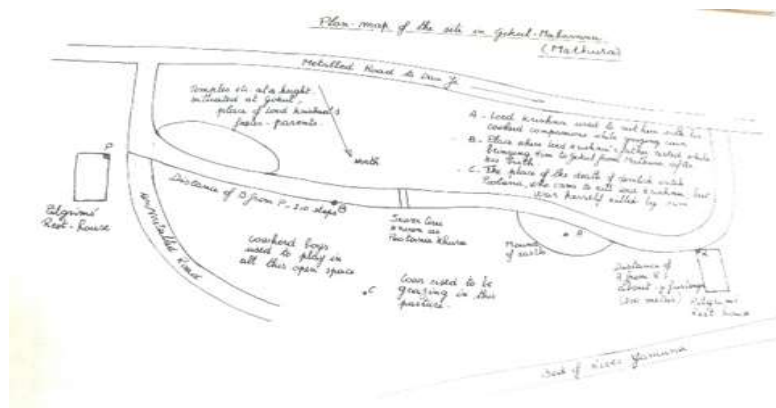 Plan-map of the site in Gokul-Mahavana
(Mathura)
Metalled Road to Dau Ji
Temples etc. at a height
situated at Gokul,
place of Lord Krishna's
foster-parents.
North
A - Lord Krishna used to eat here with his
cowherd companions while grazing cows
B - Place where Lord Krishna's father rested while
bringing him to Gokul from Mathura after
his birth
C. The place of the death of witch
Pootana, who came to kill Lord Krishna but
was herself killed by him
P
Pilgrims'
Rest-House
Distance of B from P - 210 steps
B
Unmetalled Road
Cowherd boys
used to play in
all this open space
known as
Pootana Khura
Mound
of earth
A
C
Cows used to be
grazing in this
pasture.
Distance of
A from R is
about furlongs
Pilgrims'
Rest house
Bed of river Yamuna